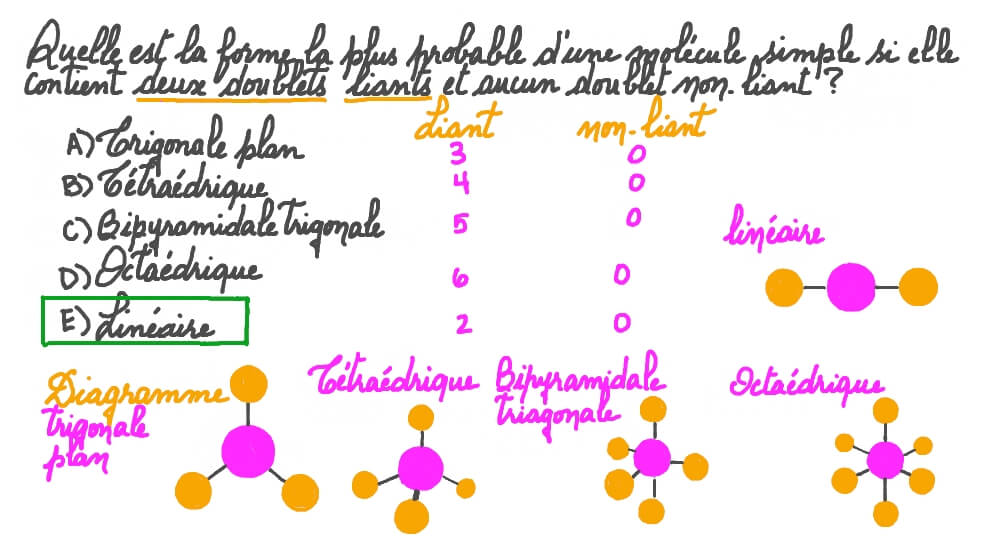 Quelle est la forme la plus probable d'une molécule simple si elle
contient deux doublets liants et aucun doublet non-liant ?
Liant non-liant
A) Trigonale plan 3 0
B) Tétraédrique 4 0
C) Bipyramidale Trigonale 5 0
D) Octaédrique 6 0
E) Linéaire 2 0
linéaire
Diagramme
trigonale
plan
Tétraédrique
Bipyramidale
triagonale
Octaédrique